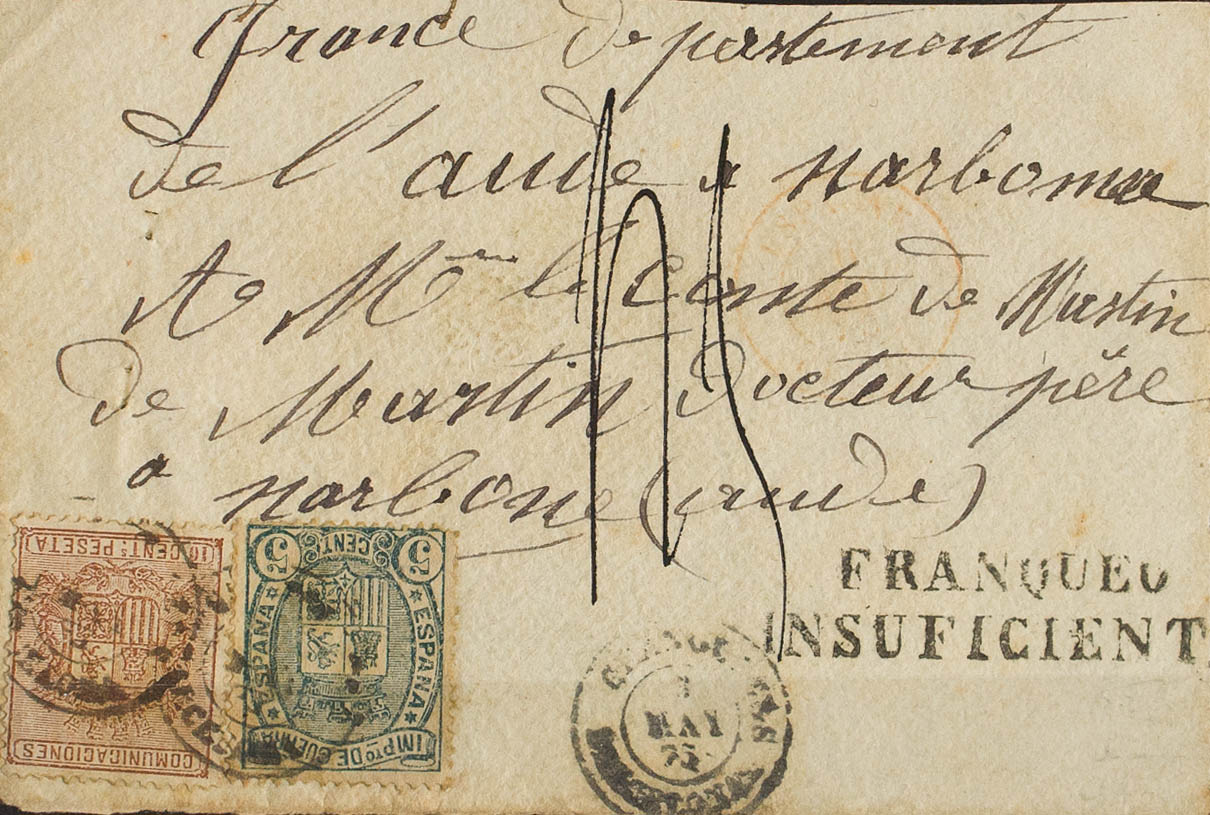 France Departement
de l'aude a narbonne
A Mr le comte de Martin
de Martin docteur père
a narbone (aude)
FRANQUEO
INSUFICIENT
10 CENT.s PESETA
COMUNICACIONES
5 CENT. 5
ESPAÑA ESPAÑA
IMPTO DE GUERRA
MAY
75